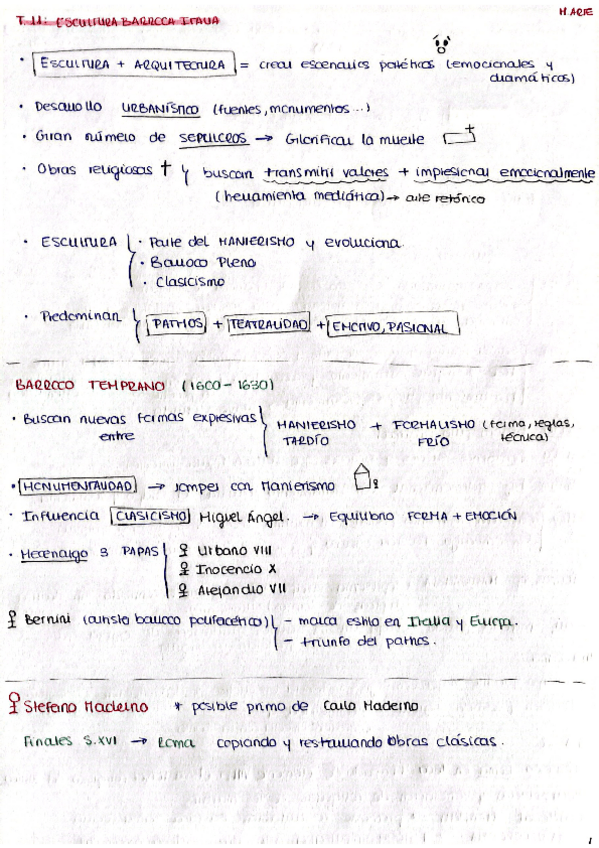 H. ARTE
T. 11: ESCULTURA BARROCA ITALIA
· ESCULTURA + ARQUITECTURA = crear escenarios patéticos (emocionales y
dramáticos)
· Desarrollo URBANÍSTICO (fuentes, monumentos...)
· Gran número de SEPULCROS → Glorificar la muerte
· Obras religiosas † y buscan transmitir valores + impresionar emocionalmente
(herramienta mediática) → arte retórico
· ESCULTURA { · Parte del MANIERISMO y evoluciona
· Barroco Pleno
· Clasicismo
· Predominan { PATHOS + TEATRALIDAD + EMOTIVO, PASIONAL
BARROCO TEMPRANO (1600-1630)
· Buscan nuevas formas expresivas { MANIERISMO + FORMALISMO (forma, reglas,
entre TARDÍO FRÍO técnica)
· MONUMENTALIDAD → romper con Manierismo
· Influencia CLASICISMO Miguel Ángel. → Equilibrio FORMA + EMOCIÓN
· Mecenazgo 3 PAPAS { Urbano VIII
Inocencio X
Alejandro VII
Bernini (artista barroco polifacético) { - marca estilo en Italia y Europa.
- triunfo del pathos.
Stefano Maderno * posible primo de Carlo Maderno
Finales S.XVI → Roma copiando y restaurando obras clásicas.